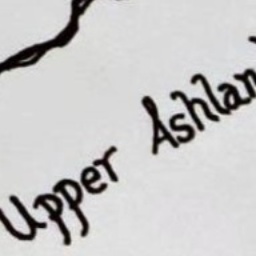 Upper Ashlan